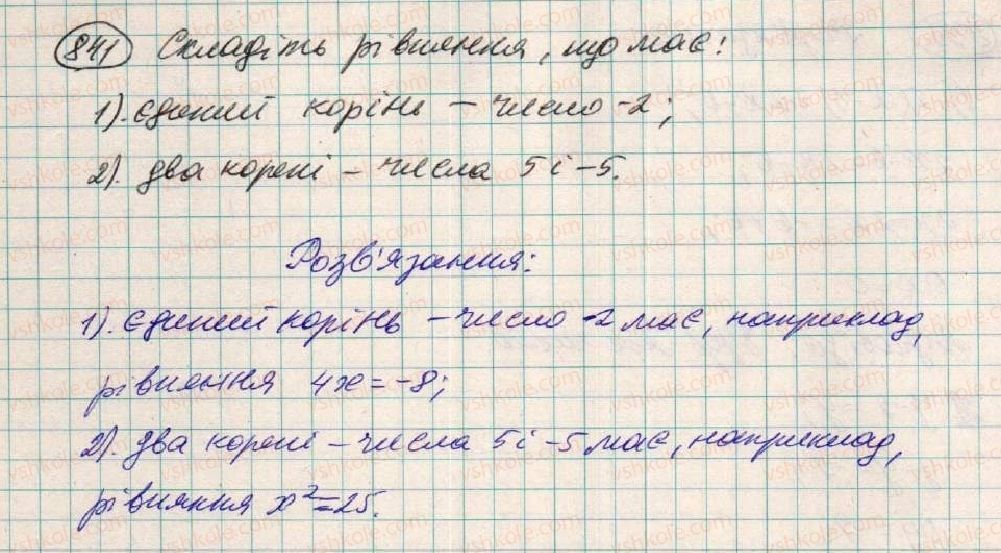 841 Складіть рівняння, що має:
1). єдиний корінь – число -2;
2). два корені – числа 5 і -5.
Розв'язання:
1). Єдиний корінь – число -2 має, наприклад,
рівняння 4x = -8;
2). два корені – числа 5 і -5 має, наприклад,
рівняння x² = 25.